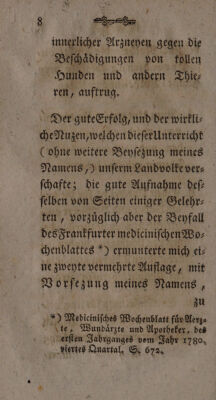 8
innerlicher Arzneyen gegen die
Beschädigungen von tollen
Hunden und andern Thie-
ren, auftrug.
Der gute Erfolg, und der wirkli-
che Nuzen, welchen dieser Unterricht
(ohne weitere Beysezung meines
Namens,) unserm Landvolke ver-
schafte; die gute Aufnahme des-
selben von Seiten einiger Gelehr-
ten, vorzüglich aber der Beyfall
des Frankfurter medicinischen Wo-
chenblattes *) ermunterte mich ei-
ne zweyte vermehrte Auflage, mit
Vorsezung meines Namens,
zu
*) Medicinisches Wochenblatt für Aerz-
te, Wundärzte und Apotheker, des
ersten Jahrganges vom Jahr 1780.
viertes Quartal, S. 672.